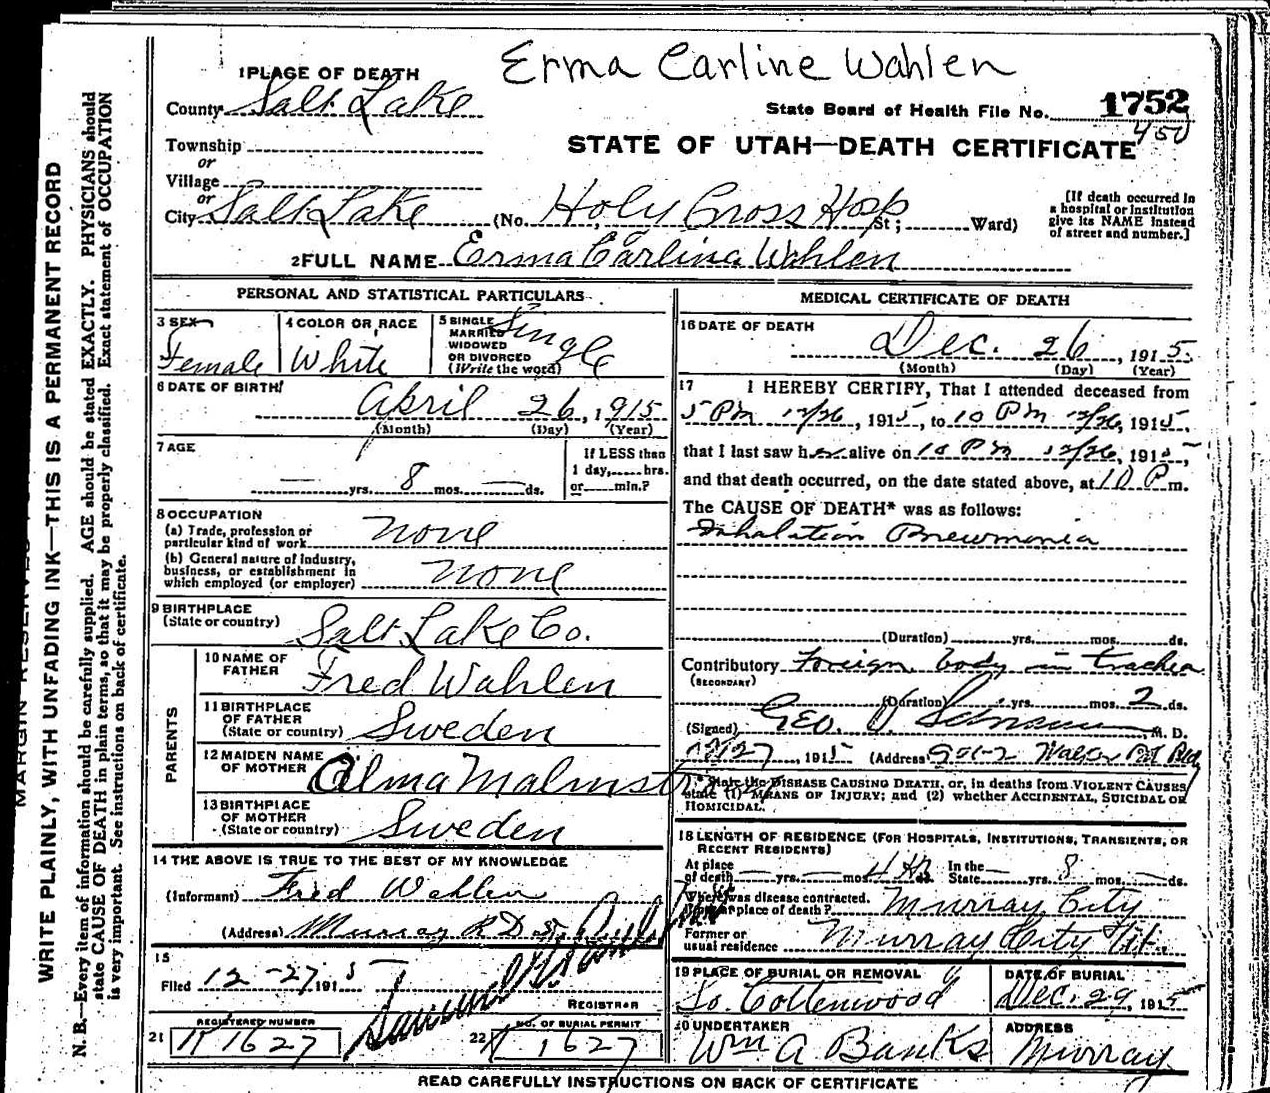 Erma Carline Wahlen
1 PLACE OF DEATH
County Salt Lake
State Board of Health File No. 1752
450
Township
or
STATE OF UTAH—DEATH CERTIFICATE
Village
or
City Salt Lake (No. Holy Cross Hosp St; Ward)
[If death occurred in a hospital or institution give its NAME instead of street and number.]
2 FULL NAME Erma Carlina Wahlen
PERSONAL AND STATISTICAL PARTICULARS
3 SEX Female
4 COLOR OR RACE White
5 SINGLE MARRIED WIDOWED OR DIVORCED (Write the word) Single
6 DATE OF BIRTH
April 26, 1915
(Month) (Day) (Year)
7 AGE
— yrs. 8 mos. — ds.
If LESS than 1 day, hrs. or min.?
8 OCCUPATION
(a) Trade, profession or particular kind of work None
(b) General nature of industry, business, or establishment in which employed (or employer) None
9 BIRTHPLACE (State or country) Salt Lake Co.
PARENTS
10 NAME OF FATHER Fred Wahlen
11 BIRTHPLACE OF FATHER (State or country) Sweden
12 MAIDEN NAME OF MOTHER Alma
13 BIRTHPLACE OF MOTHER (State or country) Sweden
14 THE ABOVE IS TRUE TO THE BEST OF MY KNOWLEDGE
(Informant) Fred Wahlen
(Address) Murray R D
15
Filed 12-27 1915
REGISTRAR
REGISTERED NUMBER
NO. OF BURIAL PERMIT
21 R 1627
22 1627
MEDICAL CERTIFICATE OF DEATH
16 DATE OF DEATH
Dec. 26, 1915.
(Month) (Day) (Year)
17 I HEREBY CERTIFY, That I attended deceased from
5 PM 12/26, 1915, to 10 PM 12/26, 1915.
that I last saw her alive on 10 PM 12/26, 1915,
and that death occurred, on the date stated above, at 10 P m.
The CAUSE OF DEATH* was as follows:
Inhalation Pneumonia
(Duration) yrs. mos. ds.
Contributory Foreign body in trachea
(SECONDARY)
(Duration) yrs. mos. 2 ds.
(Signed) Geo. M. D.
12/27, 1915 (Address)
* State the DISEASE CAUSING DEATH, or, in deaths from VIOLENT CAUSES, state (1) MEANS OF INJURY; and (2) whether ACCIDENTAL, SUICIDAL OR HOMICIDAL.
18 LENGTH OF RESIDENCE (FOR HOSPITALS, INSTITUTIONS, TRANSIENTS, OR RECENT RESIDENTS)
At place of death — yrs. — mos. 4 ds. In the State — yrs. 8 mos. — ds.
Where was disease contracted. place of death? Murray City
Former or usual residence Murray City Ut.
19 PLACE OF BURIAL OR REMOVAL So. Cottenwood
DATE OF BURIAL Dec. 29, 1915
20 UNDERTAKER Wm A Banks
ADDRESS Murray.
READ CAREFULLY INSTRUCTIONS ON BACK OF CERTIFICATE
WRITE PLAINLY, WITH UNFADING INK—THIS IS A PERMANENT RECORD
N. B.—Every item of information should be carefully supplied. AGE should be stated EXACTLY. PHYSICIANS should
state CAUSE OF DEATH in plain terms, so that it may be properly classified. Exact statement of OCCUPATION
is very important. See instructions on back of certificate.